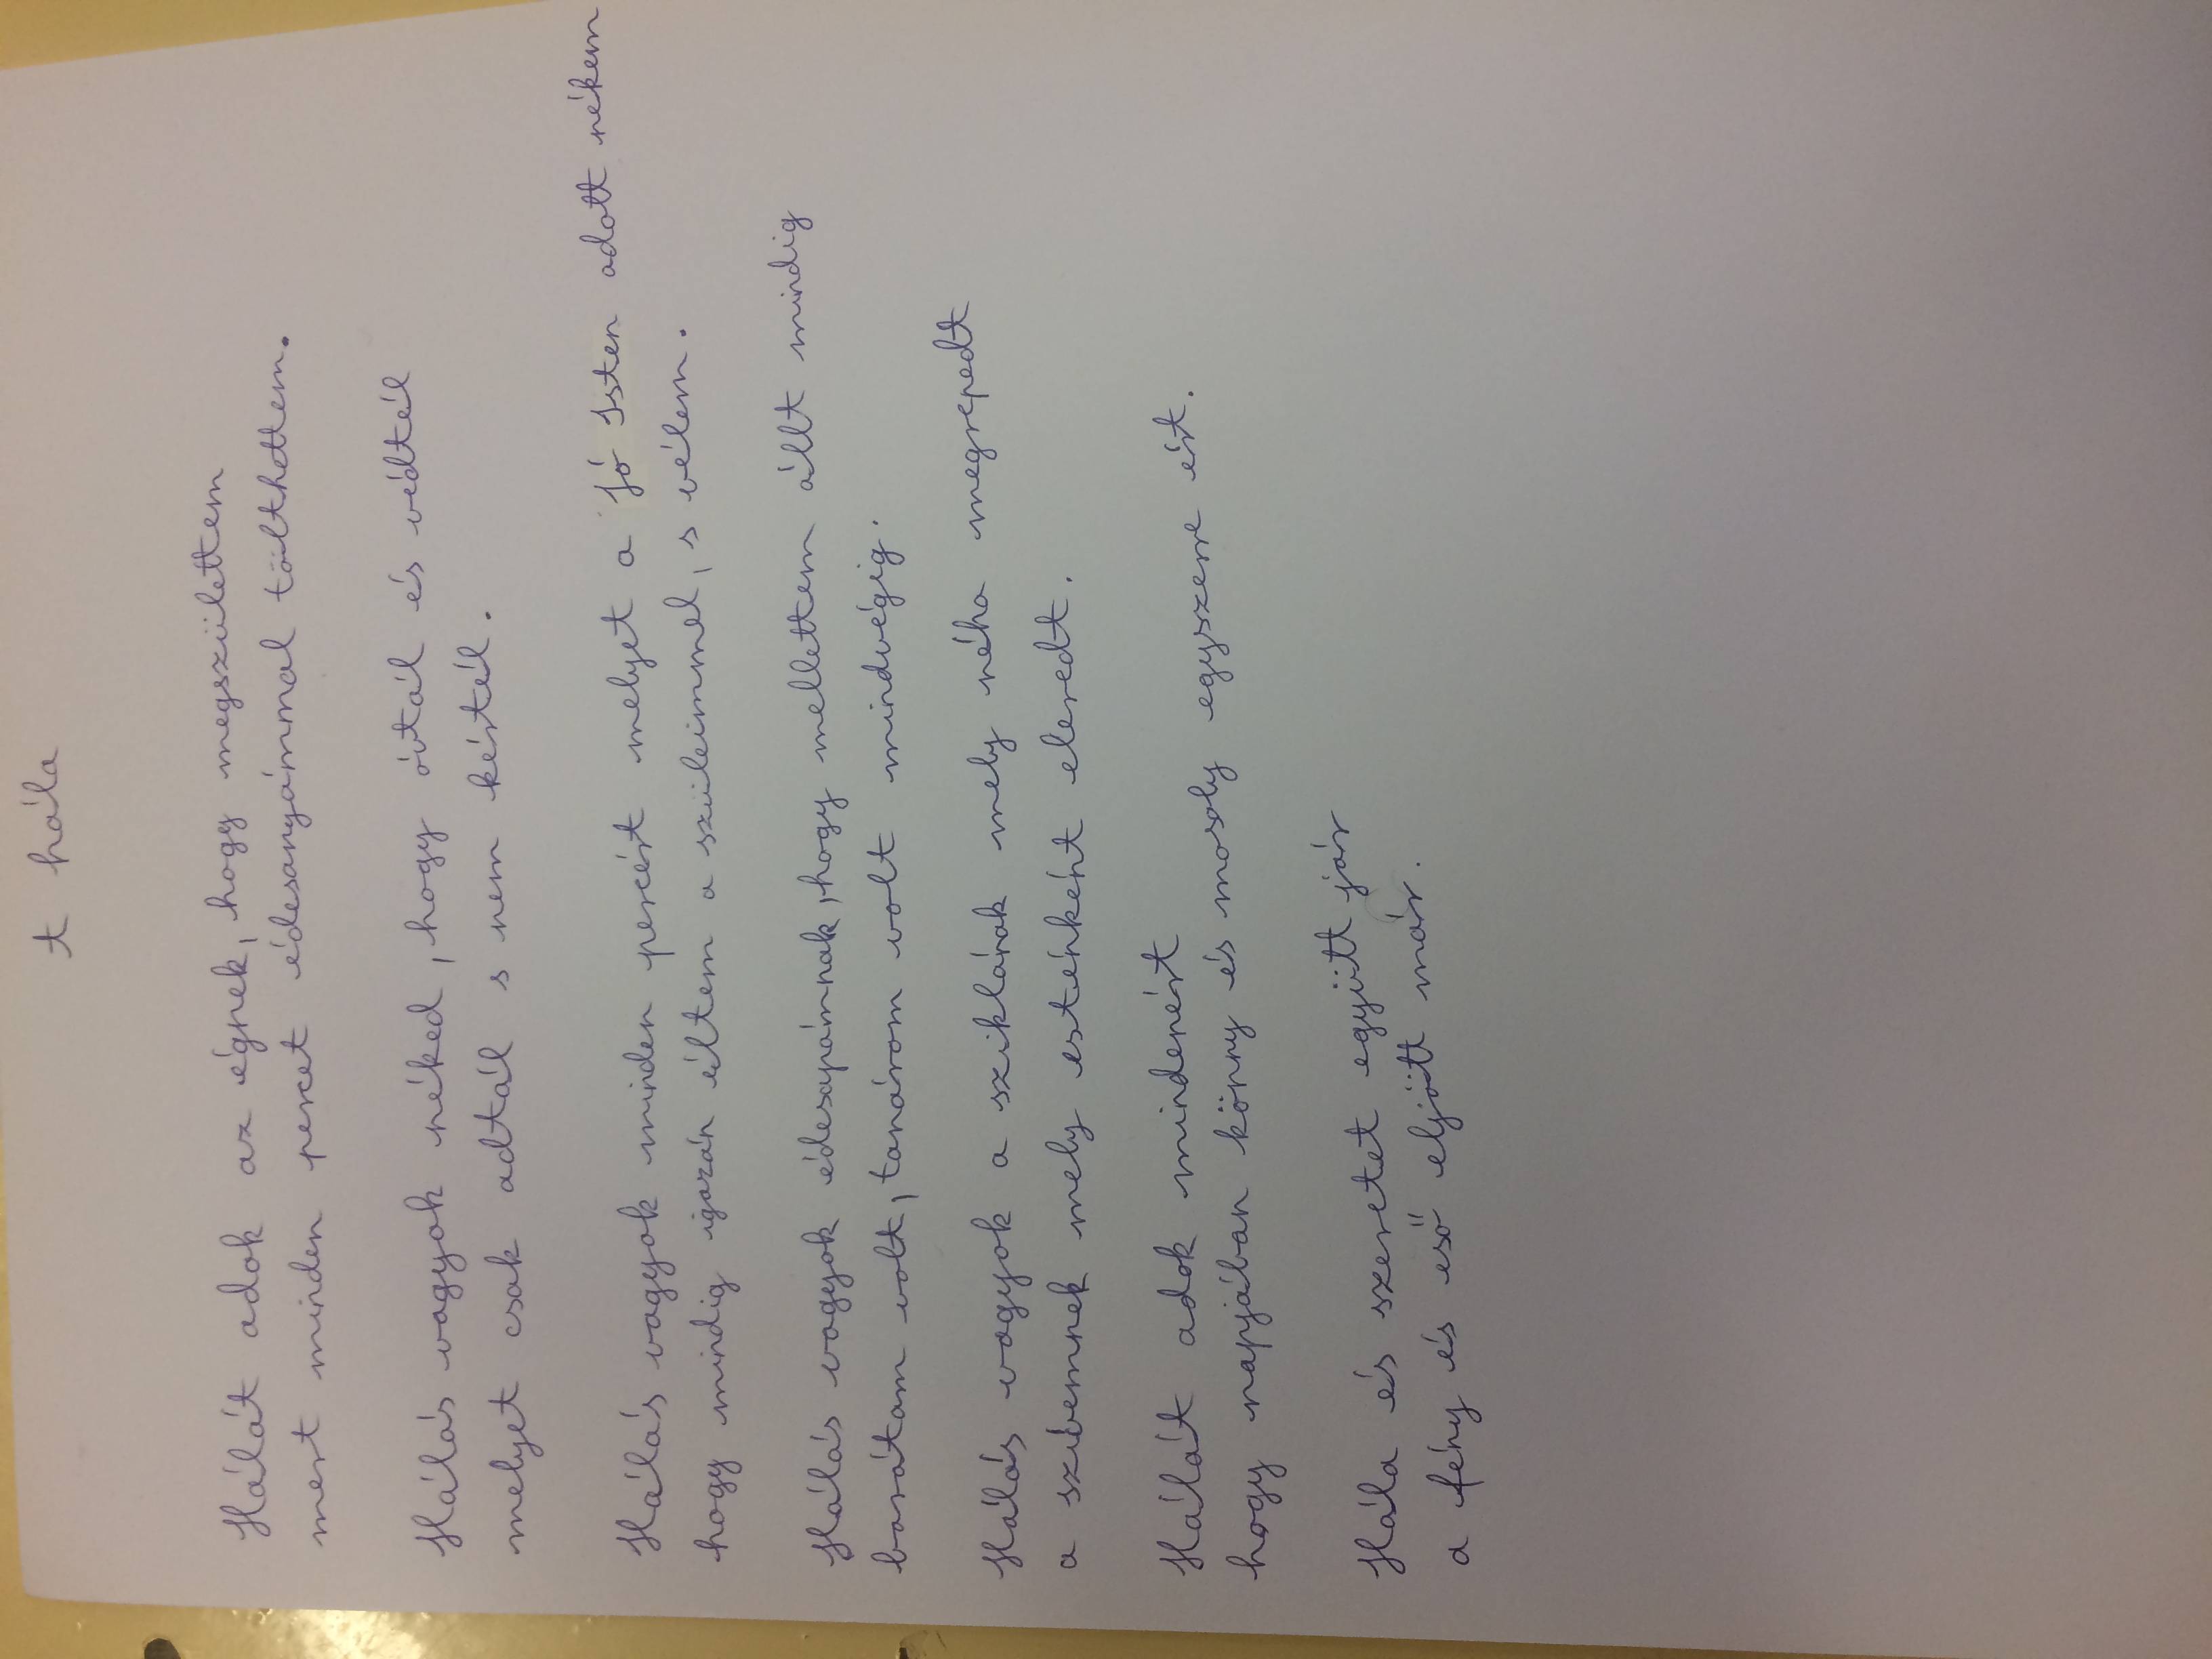 t hála
Hálát adok az égnek, hogy megszülettem
mert minden percet édesanyámmal tölthettem.
Hálás vagyok néked, hogy óvtál és védtél
melyet csak adtál s nem kértél.
Hálás vagyok minden percért melyet a Jó Isten adott nékem
hogy mindig igazán éltem a szüleimmel, s vélem.
Hálás vagyok édesapámnak, hogy mellettem állt mindig
barátam volt, tanárom volt mindvégig.
Hálás vagyok a sziklának mely néha megrepedt
a szívemnek mely esténként eleredt.
Hálát adok mindenért
hogy napjában könny és mosoly egyszerre ért.
Hála és szeretet együtt jár
a fény és eső eljött már.